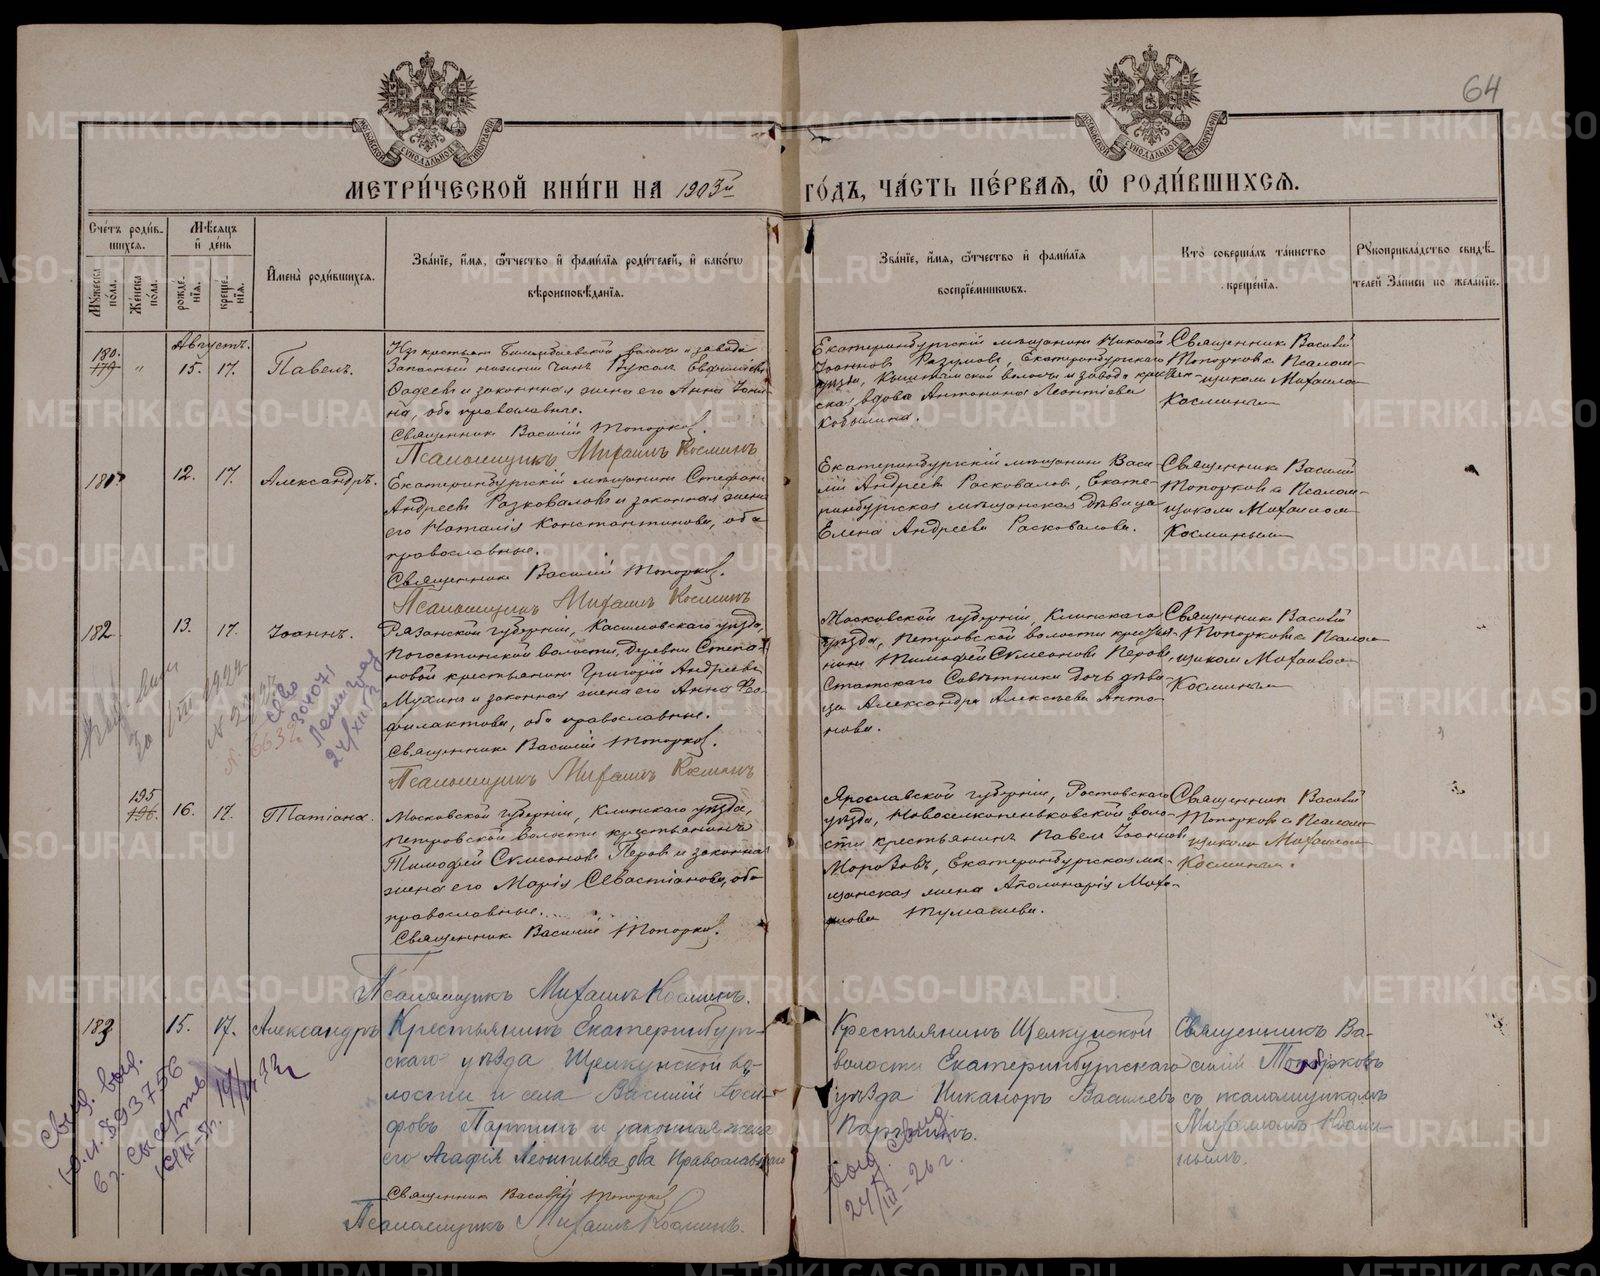 64
МОСКОВСКОЙ СѴНОДАЛЬНОЙ ТИПОГРАФІИ
МОСКОВСКОЙ СѴНОДАЛЬНОЙ ТИПОГРАФІИ
МЕТРИ́ЧЕСКОЙ КНИ́ГИ НА 1903й ГО́ДЪ, ЧА́СТЬ ПЕ́РВАЯ, Ѡ҆ РОДИ́ВШИХСЯ.
Сче́тъ роди́в-
шихся.
Мꙋжеска по́ла.
Же́нска по́ла.
Мѣ́сяцъ
и҆ де́нь
рожде́-
нїя.
креще́-
нїя.
И҆мена̀ роди́вшихся.
Зва́нїе, и҆́мя, ѻ҆́тчество и҆ фами́лїя роди́телей, и҆ како́гѡ
вѣроисповѣ́данїя.
Зва́нїе, и҆́мя, ѻ҆́тчество и҆ фами́лїя
воспрїе́мникѡвъ.
Кто̀ соверша́лъ та́инство
креще́нїя.
Рꙋкоприкла́дство свидѣ́-
телей За́писи по жела́нїю.
Августъ.
180.
179
"
15.
17.
Павелъ.
Изъ крестьян Билимбаевской волости и завода
Запасный нижний чинъ
и законная жена его Анна
на, оба православные.
Священникъ Василій Топорковъ.
Псаломщикъ Михаилъ Косминъ
Екатеринбургскій мѣщанинъ Николай
Іоанновъ Разумовъ, Екатеринбургскаго
уѣзда, Кыштымской волости и завода крестьян-
ская вдова Антонина Леонтіева
Кобылина.
Священникъ Василій
Топорковъ съ Псалом-
щикомъ Михаиломъ
Косминымъ
181
12.
17.
Александръ.
Екатеринбургскій мѣщанинъ Стефанъ
Андреевъ Расковаловъ и законная жена
его Наталія Константинова, оба
православные.
Священникъ Василій Топорковъ.
Псаломщикъ Михаилъ Косминъ
Екатеринбургскій мѣщанинъ Васи-
лій Андреевъ Расковаловъ, Екате-
ринбургская мѣщанская дѣвица
Елена Андреева Расковалова.
Священникъ Василій
Топорковъ съ Псалом-
щикомъ Михаиломъ
Косминымъ
182
13.
17.
Іоаннъ.
Рязанской губерніи, Касимовскаго уѣзда,
Погостинской волости, деревни Степа-
новой крестьянинъ Григорій Андреевъ
Мухинъ и законная жена его Анна Фео-
филактова, оба православные.
Священникъ Василій Топорковъ.
Псаломщикъ Михаилъ Косминъ
Московской губерніи, Клинскаго
уѣзда, Петровской волости крестья-
нинъ Тимофей Сѵмеоновъ Перовъ,
Статскаго Совѣтника дочь дѣви-
ца Александра Алексѣева Анто-
нова.
Священникъ Василій
Топорковъ съ Псалом-
щикомъ Михаиломъ
Косминымъ
304071
24/XII
195
196.
16.
17.
Татіана.
Московской губерніи, Клинскаго уѣзда,
Петровской волости крестьянинъ
Тимофей Сѵмеоновъ Перовъ и законная
жена его Марія Севастіанова, оба
православные.
Священникъ Василій Топорковъ.
Псаломщикъ Михаилъ Косминъ.
Ярославской губерніи, Ростовскаго
уѣзда, Новоселкопеньковской воло-
сти крестьянинъ Павелъ Іоанновъ
Морозовъ, Екатеринбургская мѣ-
щанская жена Аполинарія
Тумашева.
Священникъ Василій
Топорковъ съ Псалом-
щикомъ Михаиломъ
Косминымъ.
183
15.
17.
Александръ
Крестьянинъ Екатеринбург-
скаго уѣзда Щелкунской во-
лости и села Василій Іоси-
фовъ Паргинъ и законная жена
его Агафія Леонтьева оба Православнаго
Священникъ Василій Топорковъ
Псаломщикъ Михаилъ Косминъ.
Крестьянинъ Щелкунской
волости Екатеринбургскаго
уѣзда Никаноръ Васильевъ
Паргинъ.
Священникъ Ва-
силій Топорковъ
съ псаломщикомъ
Михаиломъ Косми-
нымъ.
893756
24/III-26 г.
METRIKI.GASO-URAL.RU